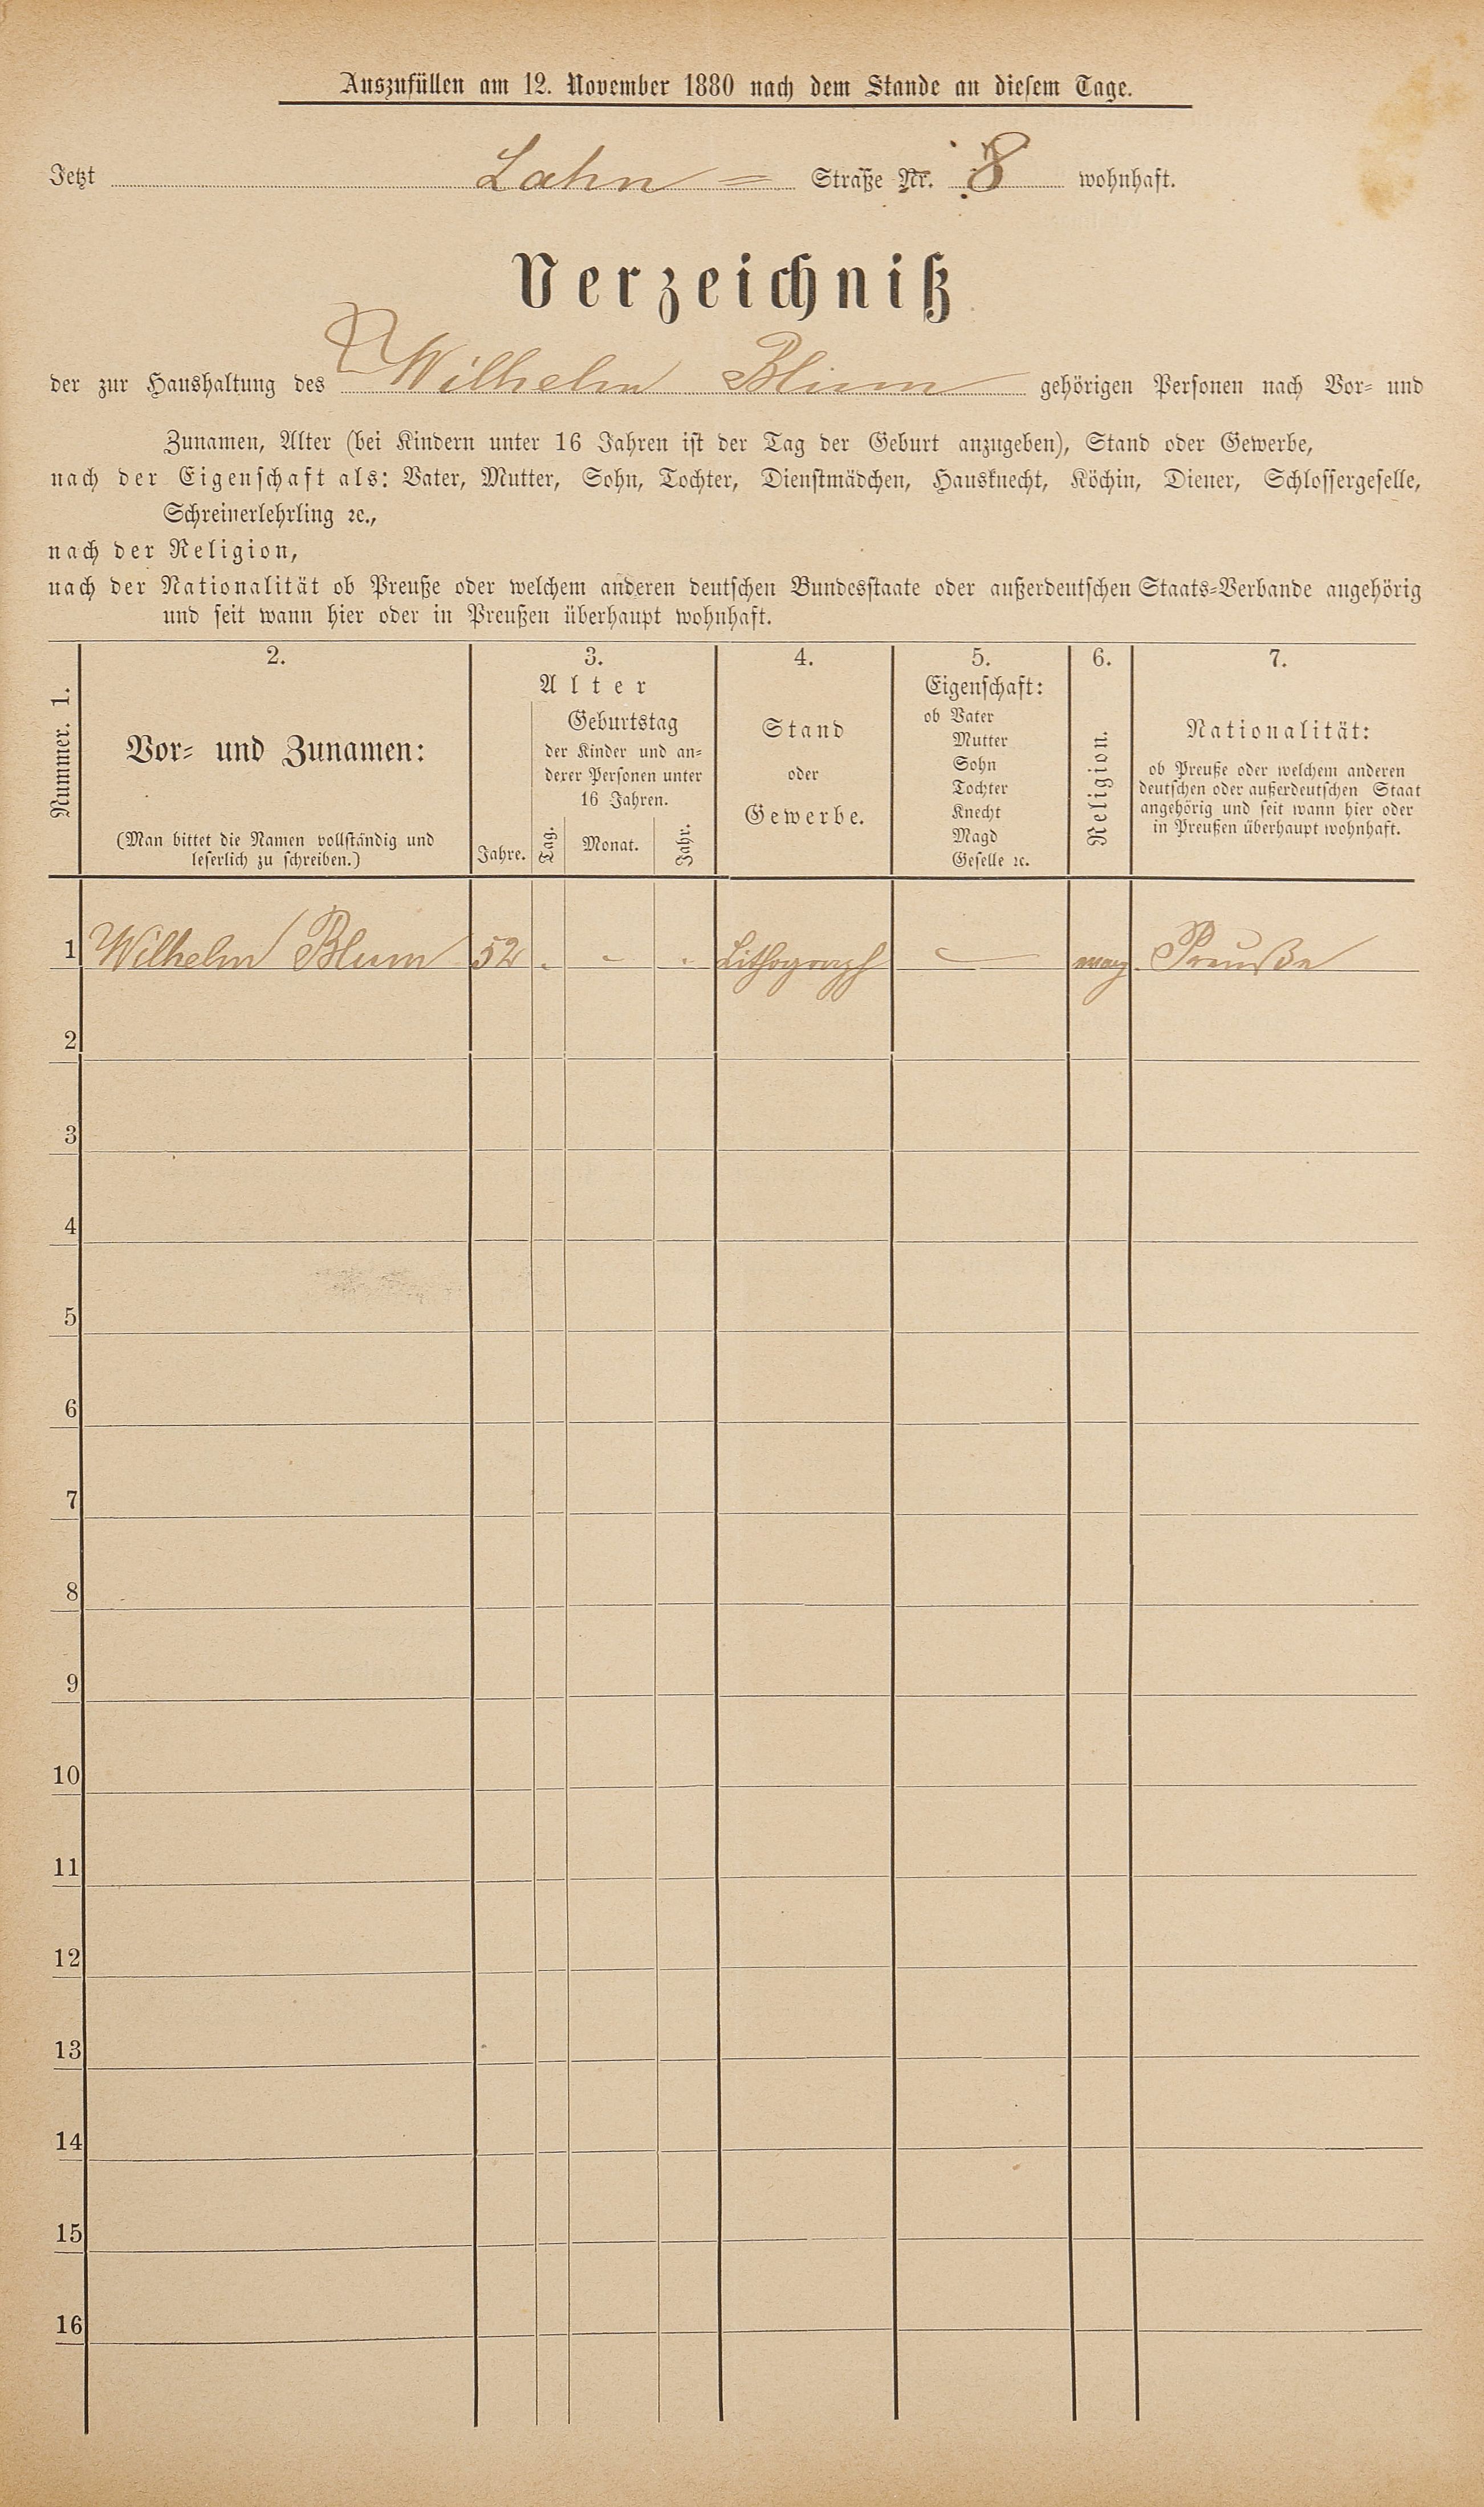 Auszufüllen am 12. November 1880 nach dem Stande an diesem Tage.
Jetzt Lahn = Straße Nr. 8 wohnhaft.
Verzeichniß
der zur Haushaltung des Wilhelm Blum gehörigen Personen nach Vor= und
Zunamen, Alter (bei Kindern unter 16 Jahren ist der Tag der Geburt anzugeben), Stand oder Gewerbe,
nach der Eigenschaft als: Vater, Mutter, Sohn, Tochter, Dienstmädchen, Hausknecht, Köchin, Diener, Schlossergeselle,
Schreinerlehrling ꝛc.,
nach der Religion,
nach der Nationalität ob Preuße oder welchem anderen deutschen Bundesstaate oder außerdeutschen Staats=Verbande angehörig
und seit wann hier oder in Preußen überhaupt wohnhaft.
Nummer. 1.
2.
Vor= und Zunamen:
(Man bittet die Namen vollständig und
leserlich zu schreiben.)
3.
Alter
Jahre.
Geburtstag
der Kinder und an=
derer Personen unter
16 Jahren.
Tag. Monat. Jahr.
4.
Stand
oder
Gewerbe.
5.
Eigenschaft:
ob Vater
Mutter
Sohn
Tochter
Knecht
Magd
Geselle ꝛc.
6.
Religion.
7.
Nationalität:
ob Preuße oder welchem anderen
deutschen oder außerdeutschen Staat
angehörig und seit wann hier oder
in Preußen überhaupt wohnhaft.
1 Wilhelm Blum 52 . - . Lithograph — Preuße
2
3
4
5
6
7
8
9
10
11
12
13
14
15
16